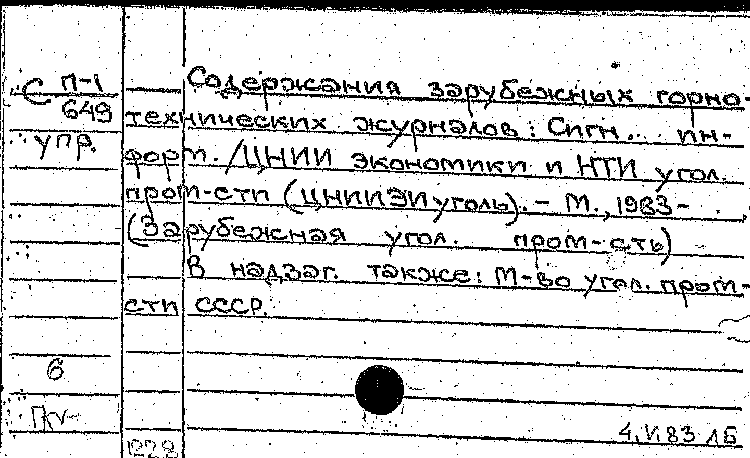 С П-1
649
упр.
Содержания зарубежных горно-
технических журналов: Сигн. ин-
форм. /ЦНИИ экономики и НТИ угол.
пром-сти (ЦНИИЭИуголь). - М., 1983-
(Зарубежная угол. пром-сть)
В надзаг. также: М-во угол. пром-
сти СССР.
6
4.VI 83 ЛБ
1228